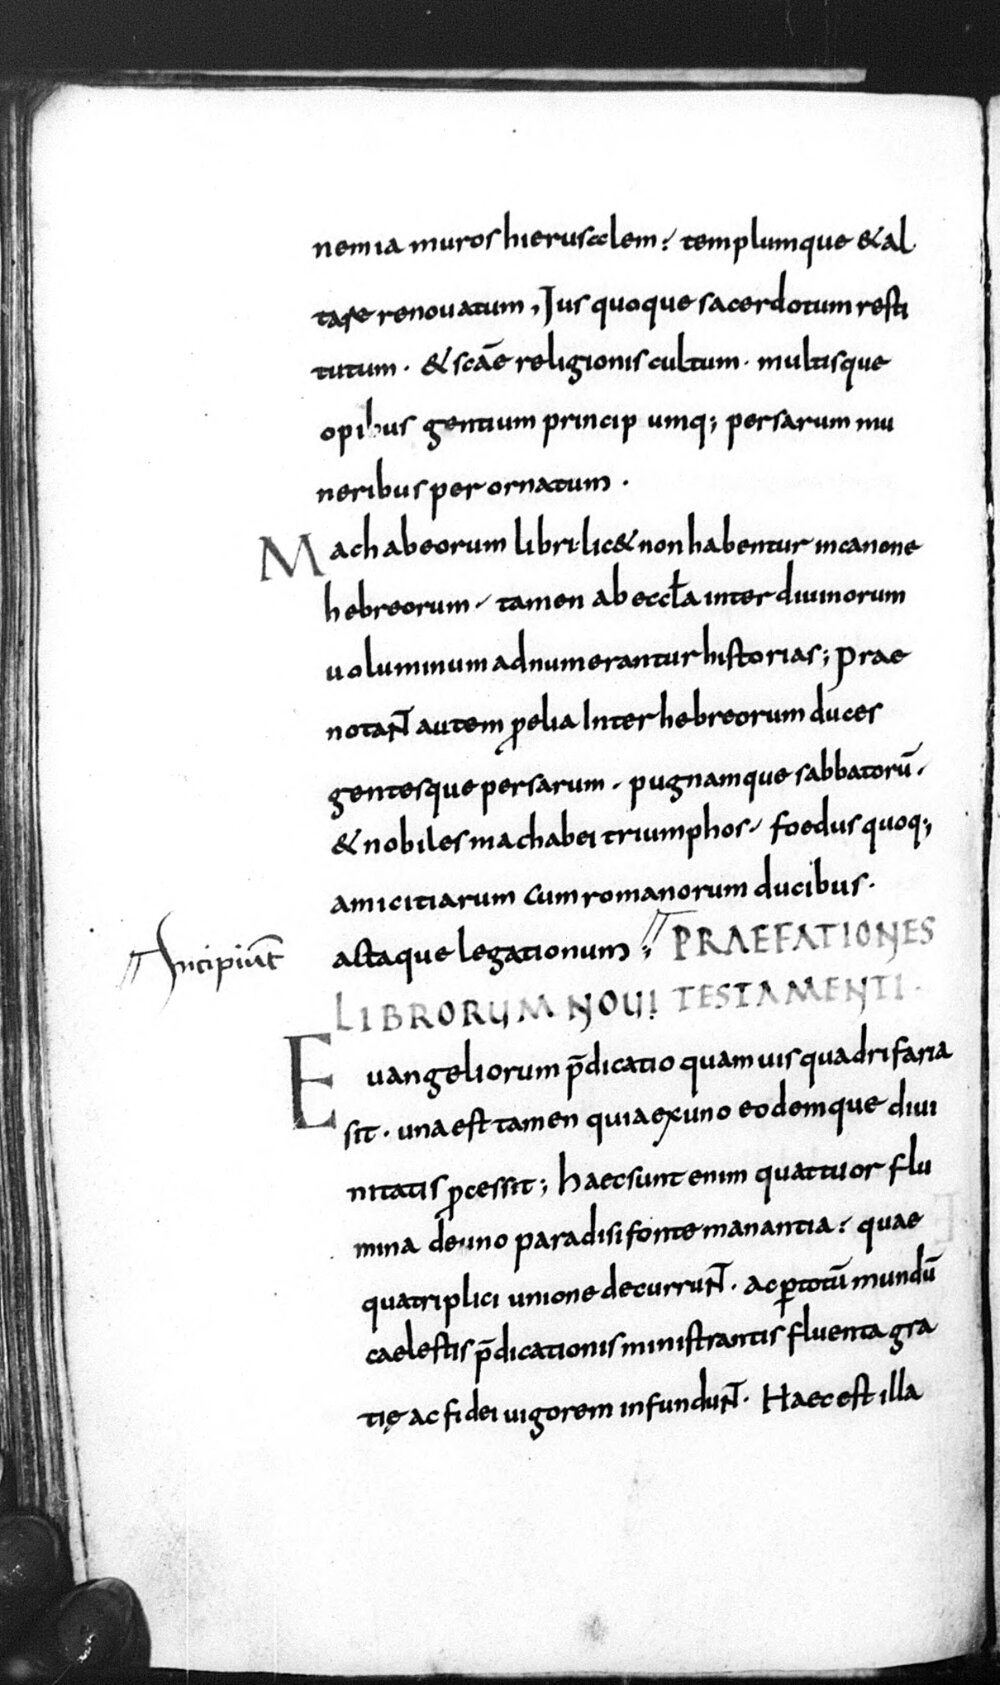 nemia muros hierusalem⸵ templumque & al
tare renouatum, Jus quoque sacerdotum resti
tutum · & scāe religionis cultum · multisque
opibus gentium princip umq; persarum mu
neribus per ornatum ·
Machabeorum libri lic& non habentur in canone
hebreorum⸝ tamen ab eccła inter diuinorum
uoluminum adnumerantur historias; Prae
notaNt̄ autem ꝓelia Inter hebreorum duces
gentesque persarum · pugnamque sabbatorū⸝
& nobiles machabei triumphos⸝ foedus quoq;
amicitiarum cum romanorum ducibus ·
Incipiūt
actaque legationum; PRAEFATIONES
LIBRORUM NOUI TESTAMENTI ·
Euangeliorum p̄dicatio quam uis quadrifaria
sit · una est tamen quia ex uno eodemque diui
nitatis ꝓcessit; haec sunt enim quattuor flu
mina de uno paradisi fonte manantia⸵ quae
quatriplici unione decurruNt̄ · ac ꝑ totū mundū
caelestis p̄dicationis ministrantis fluenta gra
tię ac fidei uigorem infunduNt̄ · Haec est illa